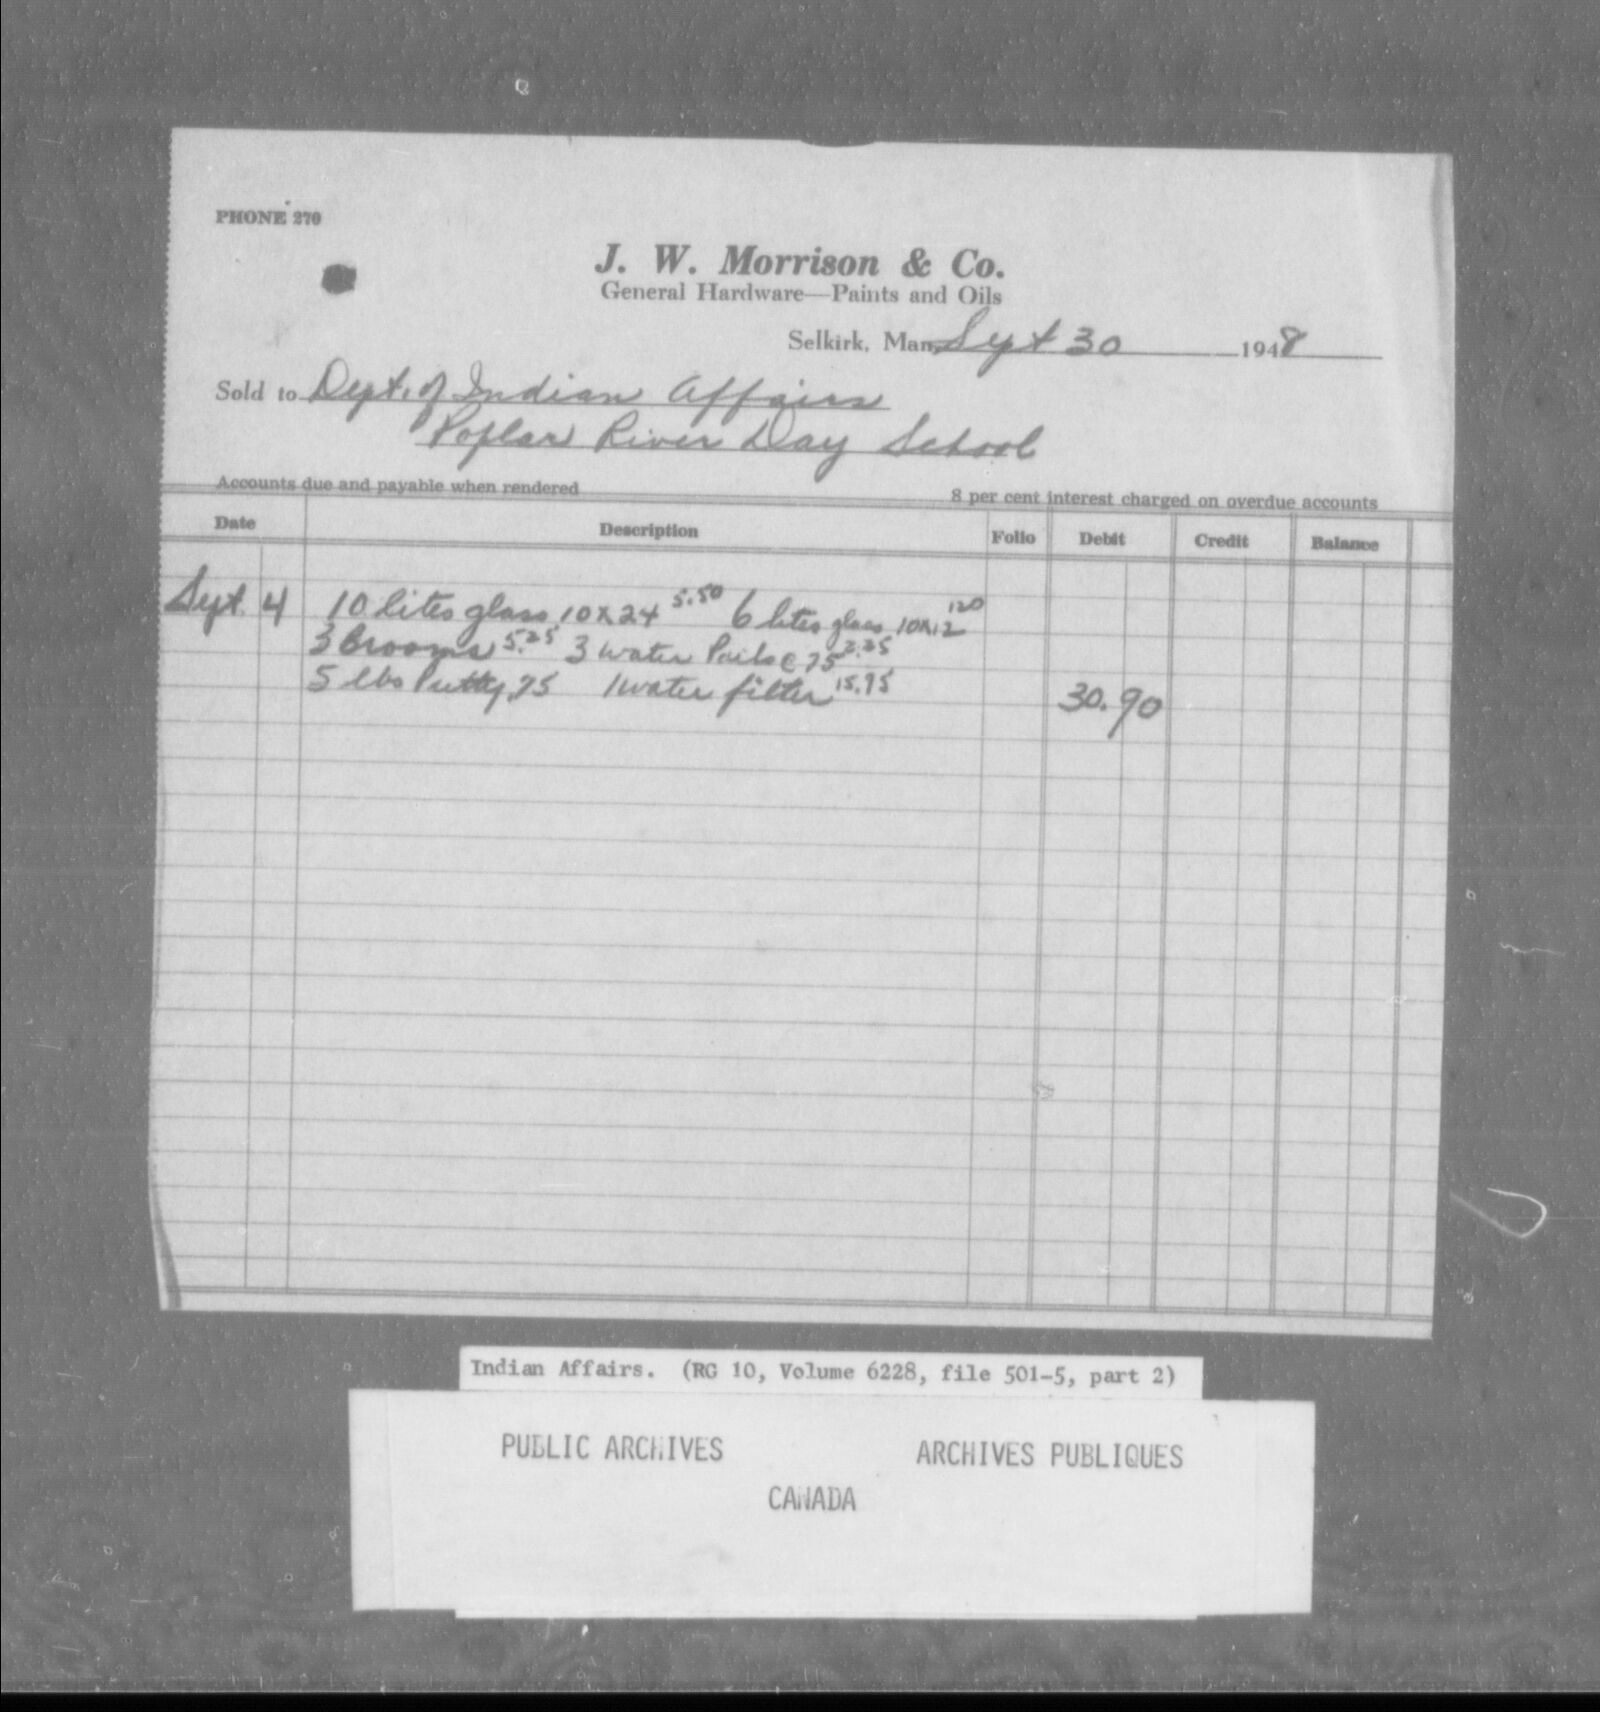 PHONE 270
J. W. Morrison & Co.
General Hardware—Paints and Oils
Selkirk, Man. Sept 30 1948
Sold to Dept. of Indian Affairs
Poplar River Day School
Accounts due and payable when rendered 8 per cent interest charged on overdue accounts
Date Description Folio Debit Credit Balance
Sept. 4 10 lites glass 10x24 5.50 6 lites glass 10x12 1.20
3 Brooms 5.25 3 water Pails @ 75 2.25
5 lbs Putty .75 1 water filter 15.95 30.90
Indian Affairs. (RG 10, Volume 6228, file 501-5, part 2)
PUBLIC ARCHIVES ARCHIVES PUBLIQUES
CANADA